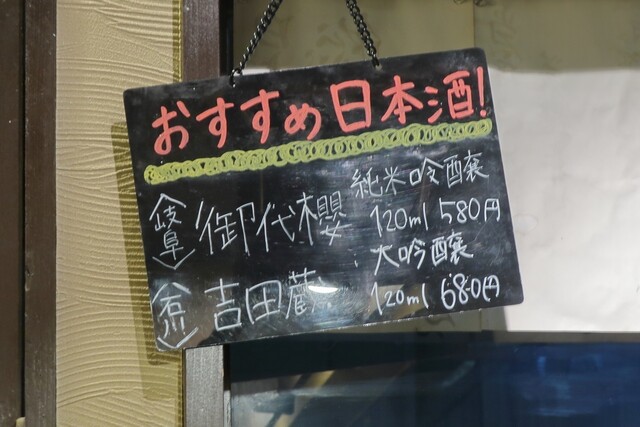 おすすめ日本酒!
〈岐阜〉 御代櫻 純米吟醸
120ml 580円
〈石川〉 吉田蔵 大吟醸
120ml 680円